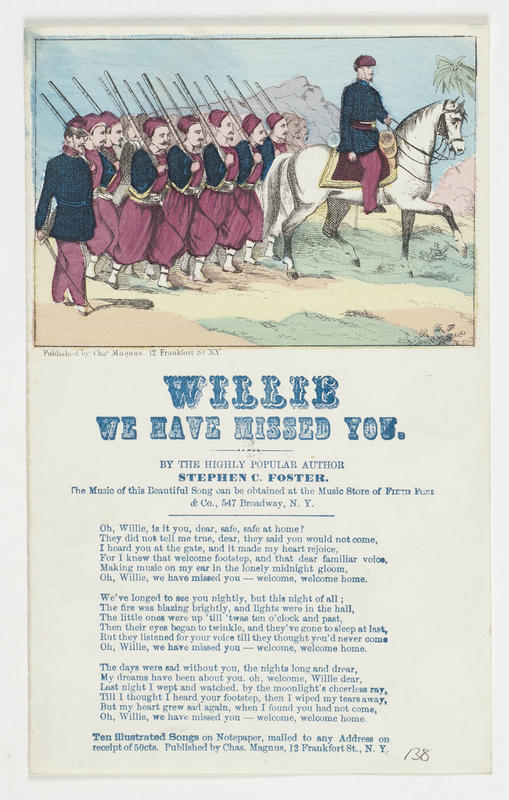 Published by Chaˢ Magnus. 12 Frankfort St N.Y.
WILLIE
WE HAVE MISSED YOU.
BY THE HIGHLY POPULAR AUTHOR
STEPHEN C. FOSTER.
The Music of this Beautiful Song can be obtained at the Music Store of FIRTH POND
& Co., 547 Broadway, N. Y.
Oh, Willie, is it you, dear, safe, safe at home?
They did not tell me true, dear, they said you would not come,
I heard you at the gate, and it made my heart rejoice,
For I knew that welcome footstep, and that dear familiar voice,
Making music on my ear in the lonely midnight gloom,
Oh, Willie, we have missed you — welcome, welcome home.
We've longed to see you nightly, but this night of all;
The fire was blazing brightly, and lights were in the hall,
The little ones were up 'till 'twas ten o'clock and past,
Then their eyes began to twinkle, and they've gone to sleep at last,
But they listened for your voice till they thought you'd never come
Oh, Willie, we have missed you — welcome, welcome home.
The days were sad without you, the nights long and drear,
My dreams have been about you, oh, welcome, Willie dear,
Last night I wept and watched, by the moonlight's cheerless ray,
Till I thought I heard your footstep, then I wiped my tears away,
But my heart grew sad again, when I found you had not come,
Oh, Willie, we have missed you — welcome, welcome home.
Ten Illustrated Songs on Notepaper, mailed to any Address on
receipt of 50cts. Published by Chas. Magnus, 12 Frankfort St., N. Y.
138